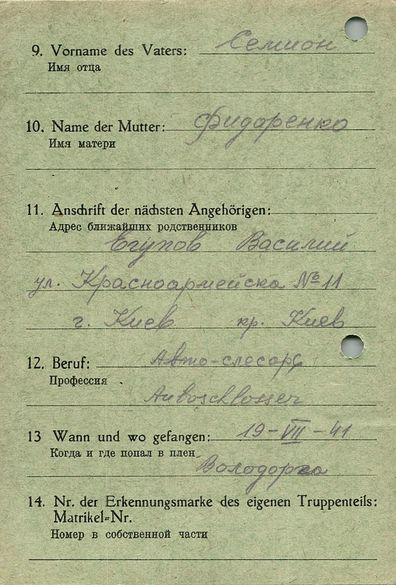 9. Vorname des Vaters: Семион
Имя отца
10. Name der Mutter: Фидоренко
Имя матери
11. Anschrift der nächsten Angehörigen:
Адрес ближайших родственников
Василий
ул. Красноармейска № 11
г. Киев кр. Киев
12. Beruf: Авто-слесарь
Профессия
Autoschlosser
13 Wann und wo gefangen: 19-VII-41
Когда и где попал в плен
14. Nr. der Erkennungsmarke des eigenen Truppenteils:
Matrikel=Nr.
Номер в собственной части